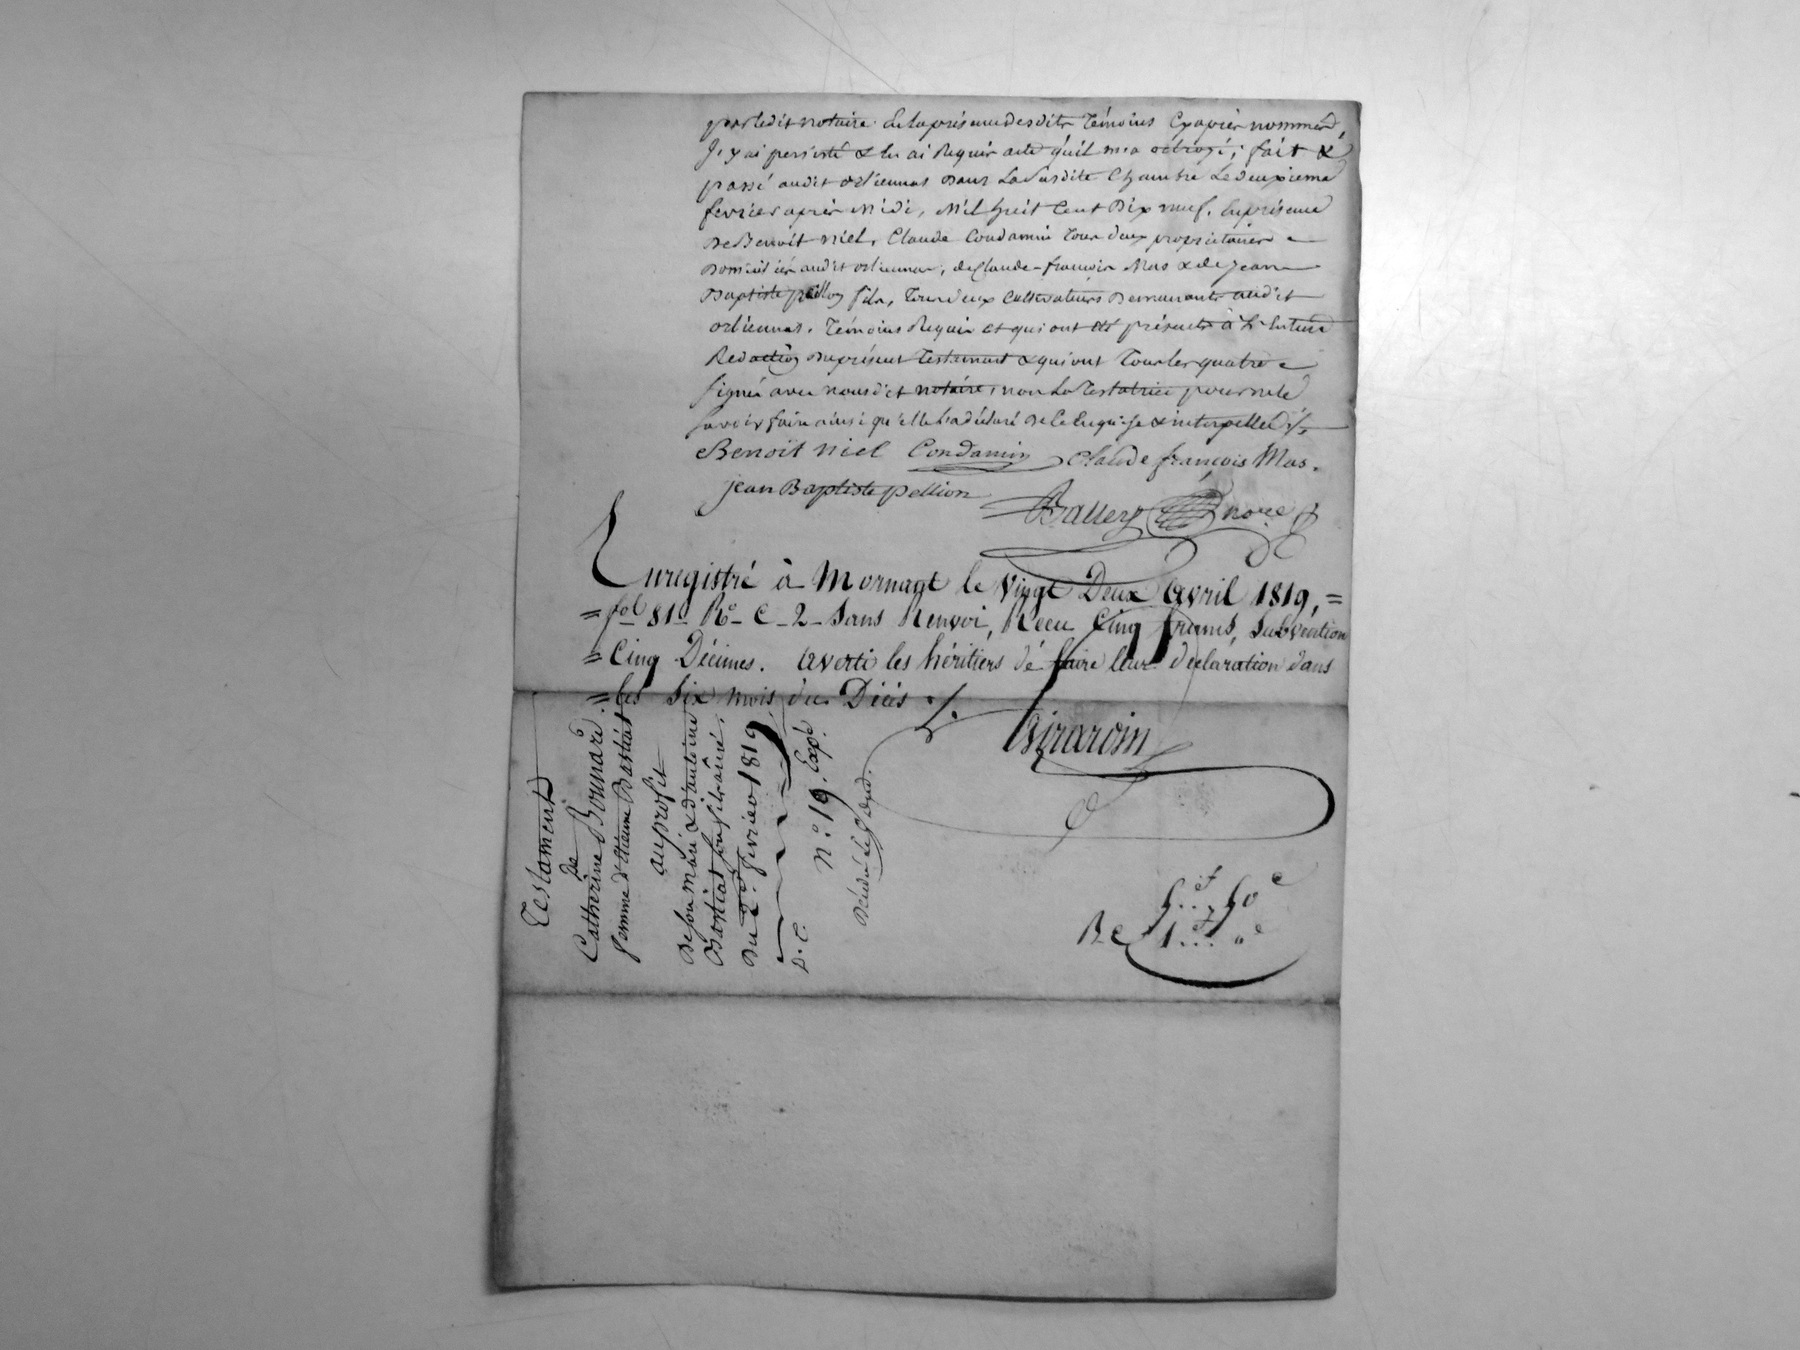 par ledit notaire en la présence desdits Témoins Cy après nommés,
J'y ai persisté & lui ai Requis acte qu'il m'a octroyé; fait &
passé audit orliennas dans La Susdite Chambre Le deuxieme
fevrier après Midi, Mil huit Cent Dix neuf. En présence
De Benoit Niel, Claude Condamin Tous deux propriétaires
Domiciliés audit orliennas, de Claude-françois Mas & de Jean
Baptiste pellion fils, Tous deux Cultivateurs Demeurants audit
orliennas. Témoins Requis et qui ont été présents à L'Entiere
Redaction du présent Testament & qui ont Tous les quatre
signés avec nous dit notaire, non La Testatrice pour ne le
savoir faire ainsi qu'elle l'a déclaré De ce Enquise & interpellée ./.
Benoit Niel Condamin Claude françois Mas.
jean Baptiste pellion
no.re
Enregistré à Mornant le Vingt Deux avril 1819,=
=fol 81 Ro- C-2- Sans Renvoi, Recu Cinq francs, Subvention
=Cinq Décimes. averti les héritiers de faire leur déclaration dans
=les Six mois du Décès ./.
Girardin
Testament
de
Catherine Bonnard
femme d'Etienne Bastiat
au profit
De son mari & d'antoine
Bastiat
Du 2. fevrier 1819
D. C.
N.o 19. Exp.é
Re 5..f 50c
1..f "c